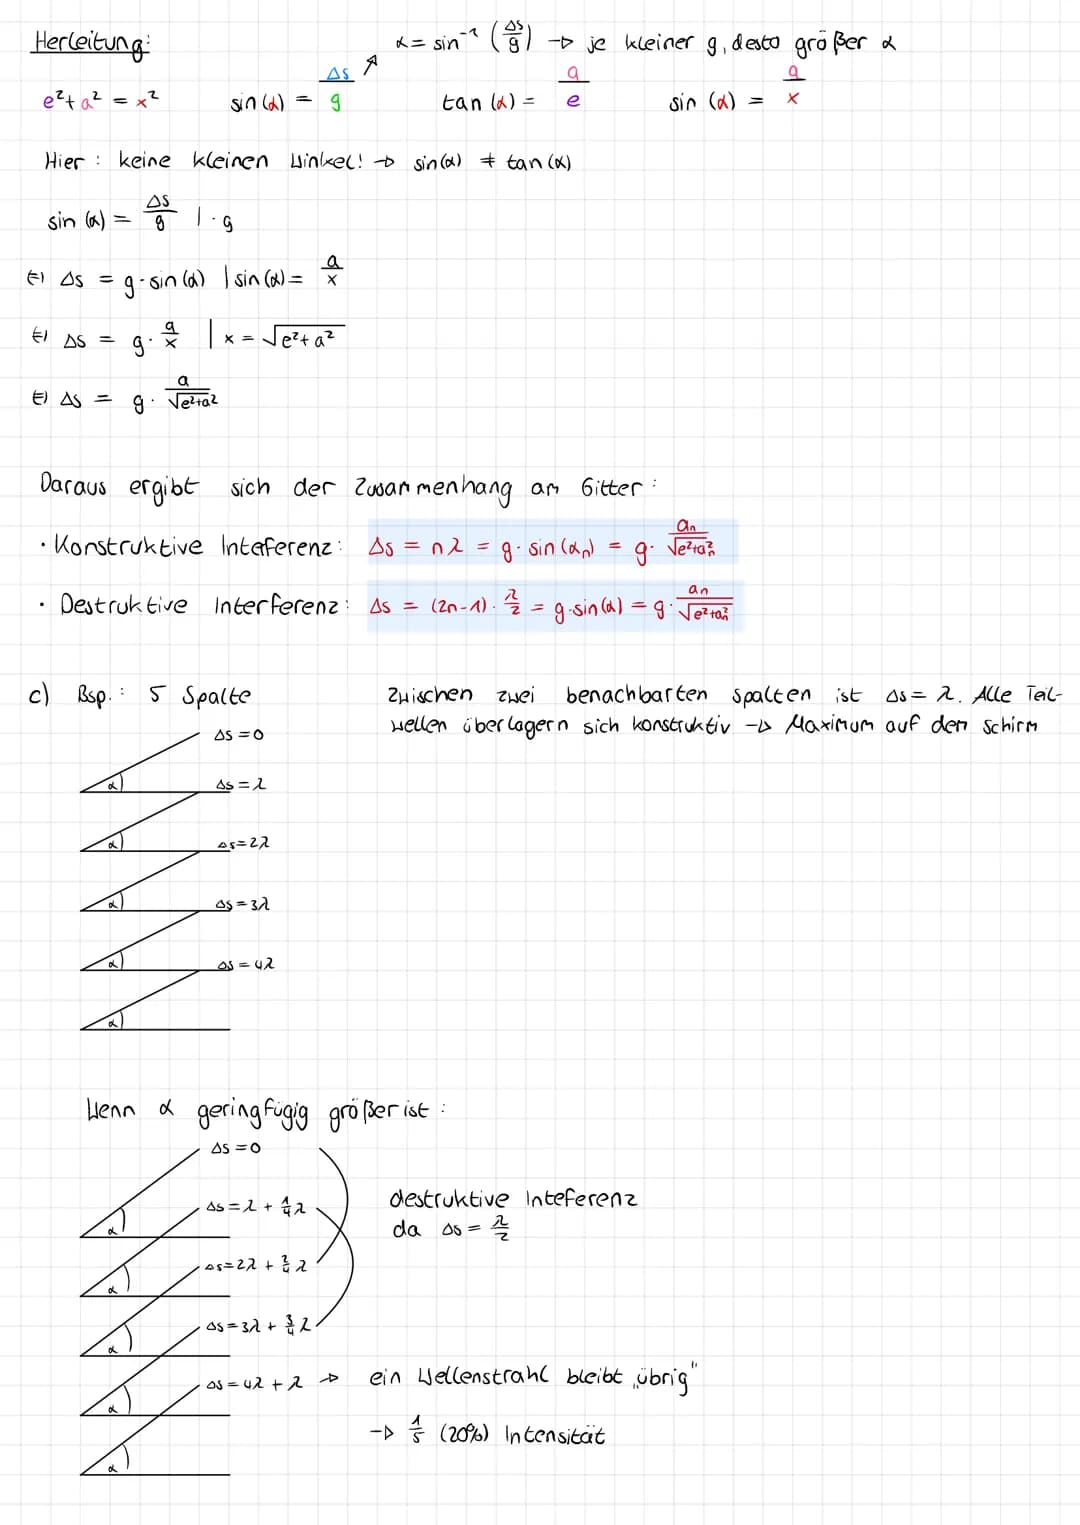 Herleitung:
α = sin⁻¹ (Δs/g) → je kleiner g, desto größer α
e² + a² = x²   sin(α) = Δs/g   tan(α) = a/e   sin(α) = a/x
Hier: keine kleinen Winkel! → sin(α) ≠ tan(α)
sin(α) = Δs/g | · g
⇔ Δs = g · sin(α) | sin(α) = a/x
⇔ Δs = g · a/x | x = √(e² + a²)
⇔ Δs = g · a/√(e²+a²)
Daraus ergibt sich der Zusammenhang am Gitter:
· Konstruktive Inteferenz: Δs = nλ = g · sin(αn) = g · an/√(e²+an²)
· Destruktive Interferenz: Δs = (2n-1) · λ/2 = g · sin(α) = g · an/√(e²+an²)
c) Bsp.: 5 Spalte
Zwischen zwei benachbarten Spalten ist Δs = λ. Alle Teil-
wellen überlagern sich konstruktiv → Maximum auf dem Schirm
Δs = 0
α
Δs = λ
α
Δs = 2λ
α
Δs = 3λ
α
Δs = 4λ
α
Wenn α geringfügig größer ist:
Δs = 0
α
Δs = λ + 1/4 λ
α
Δs = 2λ + 2/4 λ
α
Δs = 3λ + 3/4 λ
α
Δs = 4λ + λ → ein Wellenstrahl bleibt „übrig"
α
destruktive Inteferenz
da Δs = λ/2
→ 1/5 (20%) Intensität